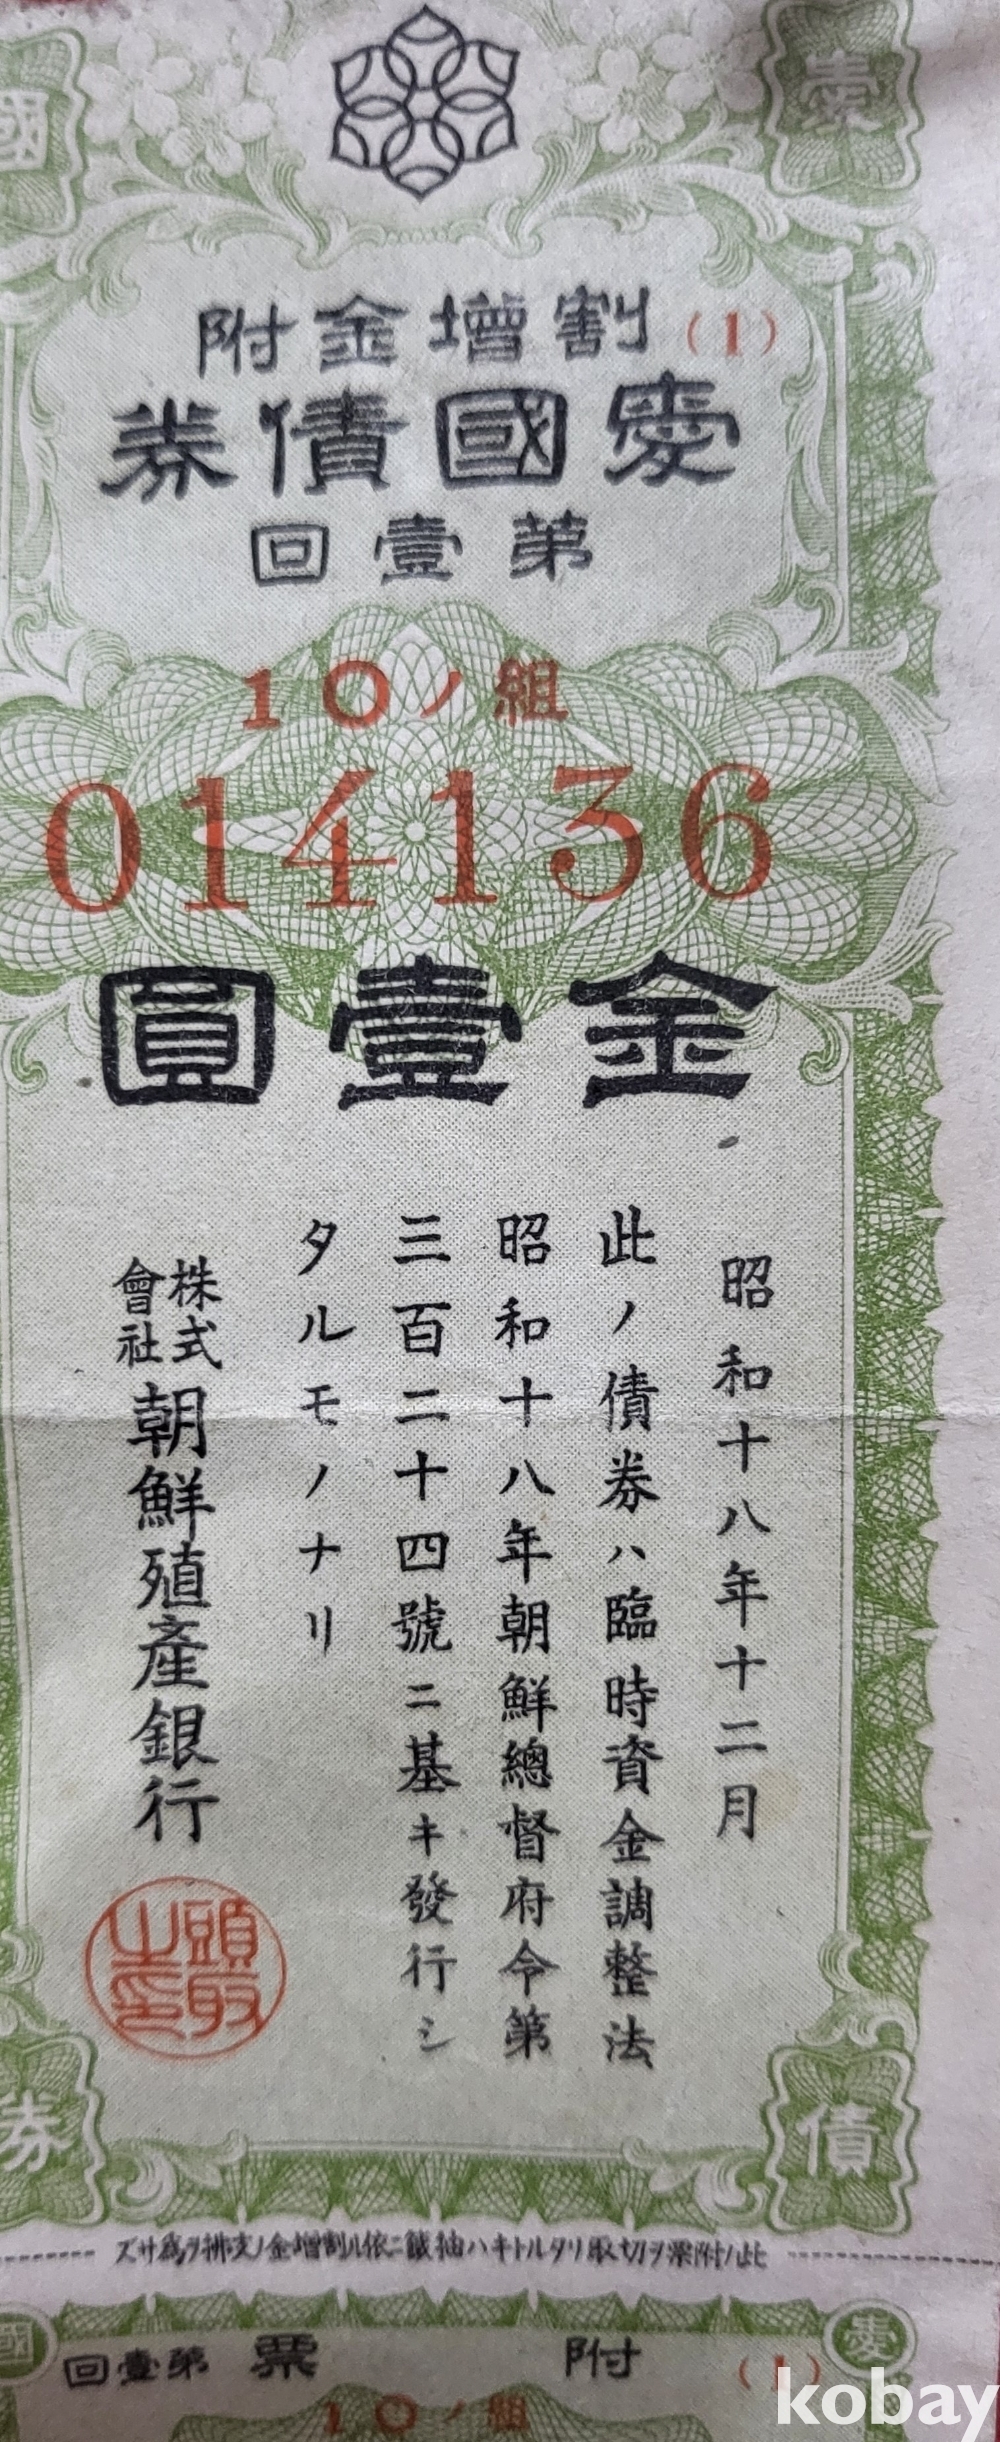 國 愛
割增金附 (1)
愛國債券
第壹回
10ノ組
014136
金壹圓
昭和十八年十二月
此ノ債券ハ臨時資金調整法
昭和十八年朝鮮總督府令第
三百二十四號ニ基キ發行シ
タルモノナリ
株式會社朝鮮殖產銀行
頭取之印
債 券
此ノ附票ヲ切取リタルトキハ抽籤ニ依ル割增金ノ支拂ヲ爲サズ
國 愛
附票 第壹回
(1)
10ノ組
kobay